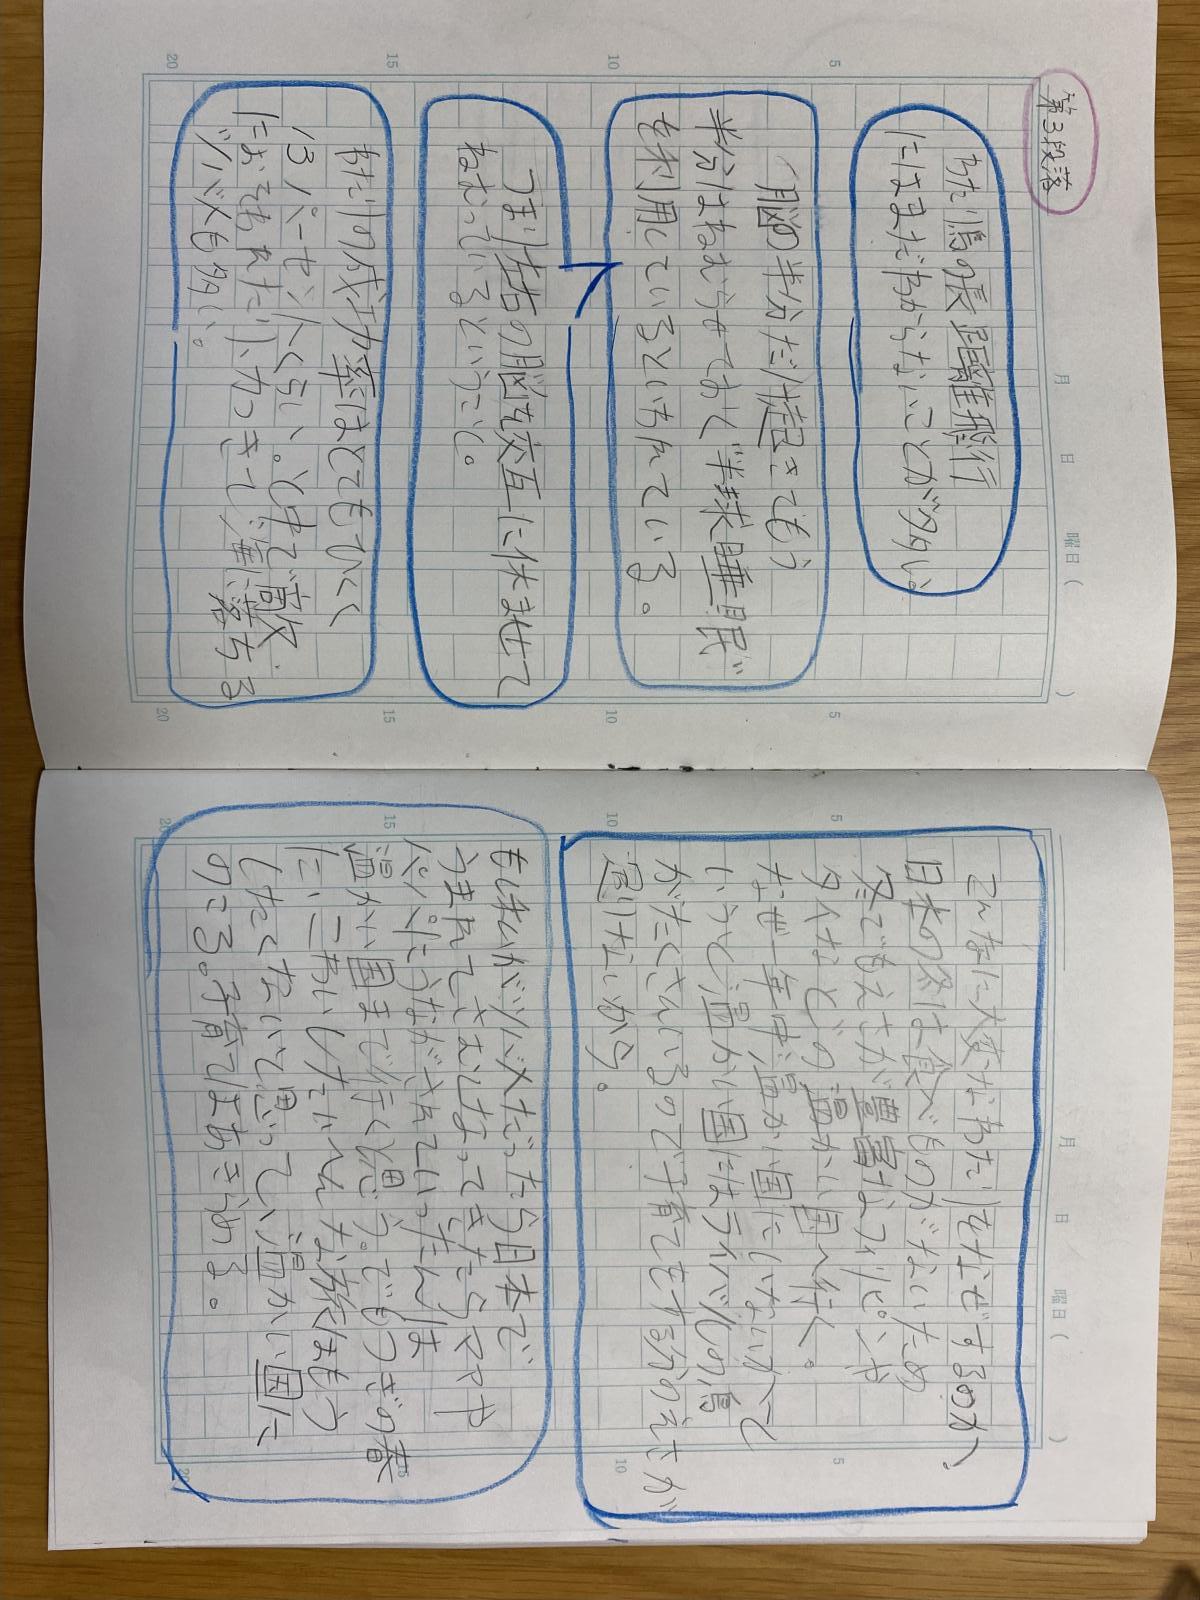 第3段落
わたり鳥の長距離飛行
にはまだわからないことが多い。
脳の半分だけ起きてもう
半分はねむらせておく"半球睡眠"
を利用しているといわれている。
つまり左右の脳を交互に休ませて
ねむっているということ。
わたりの成功率はとてもひくく
13パーセントくらい。と中で敵
におそわれたり、力つきて海に落ちる
ツバメも多い。
月 日 曜日( )
5
10
15
20
こんなに大変なわたりをなぜするのか、
日本の冬は食べものがないため
冬でもえさが豊富なフィリピンや
タイなどの温かい国へ行く。
なぜ一年中温かい国にいないかって
いうと温かい国にはライバルの鳥
がたくさんいるので子育てをする分のえさが
足りないから。
もし私がツバメだったら日本で
うまれてさむくなってきたらママや
パパにうながされていったんは
温かい国まで行くと思う。でもつぎの春
に、二わりしたいへんな旅はもう
したくないと思って温かい国に
のこる。子育てはあきらめる。
月 日 曜日( )
5
10
15
20